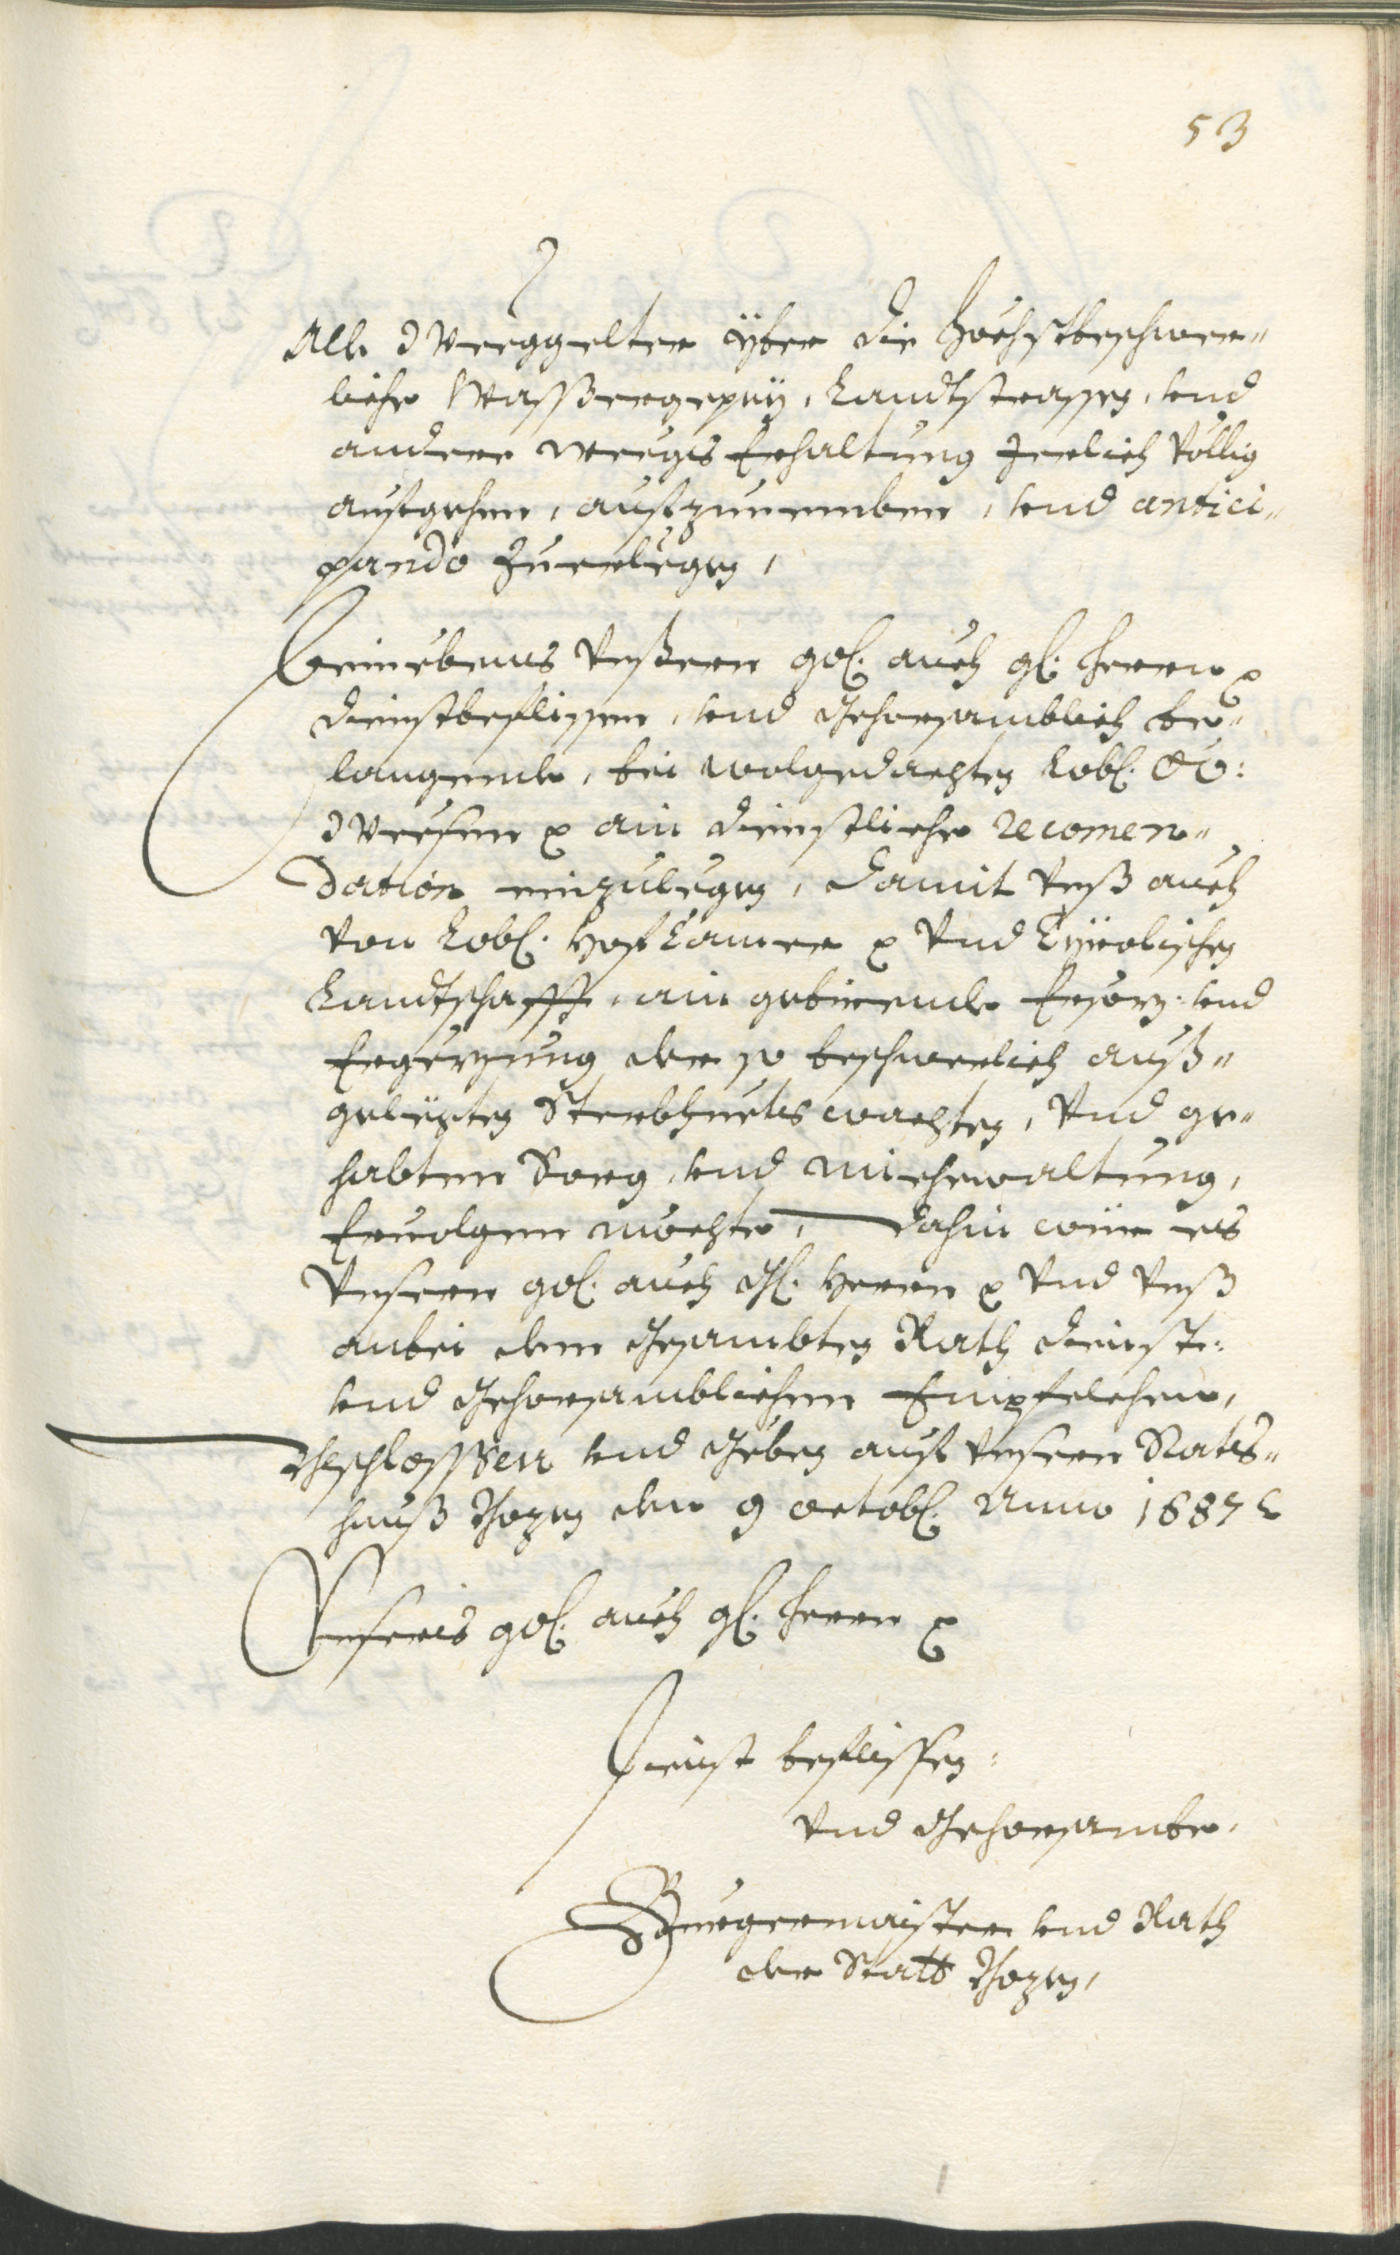 53
Alle Weeggelter yber die höchstbeschwer-
liche Wasßergepey, Landtstrassen, und
andere weegs Erhaltung Jerlich völlig
aufgehen, aufzunemben, und antici-
pando zuerlegen,
Beinebens Unßeren gol. auch gl. Herrn p
dienstbeflissen, und gehorsamblich be-
langende, bei wolgedachten Lobl. OÖ:
Weesen p ain dienstliche recomen-
dation einzulegen, damit Unß auch
von Lobl. HofCamer p Und Tyrolischen
Landtschafft, ain gebirende Ersez: und
Ergenzung der so beschwerlich auß-
gelegten Sterbheuts wachten, Und ge-
habten Sorg, und miehewaltung,
Ervolgen mechte, dahin wür es
Unseren gol. auch gl. Herrn p Und Unß
anbei dem gesambten Rath dienst-
und gehorsamblichen Empfelchen,
Geschlossen und Geben auf unseren Rats-
hauß Bozen den 9 octobl. Anno 1687
Unsers gol. auch gl. Herrn p
Dienst beflissen:
Und Gehorsambe.
Burgermaister und Rath
der Statt Bozen,